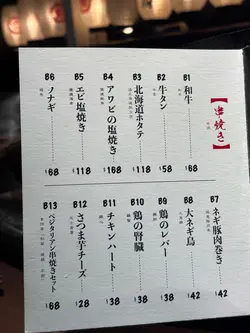 【串焼き】
B1
和牛
$68
B2
牛タン
$58
B3
北海道ホタテ
$168
B4
アワビの塩焼き
$168
B5
エビ塩焼き
$118
B6
ノナギ
$68
B7
ネギ豚肉巻き
$42
B8
大ネギ鳥
$42
B9
鶏のレバー
$38
B10
鶏の腎臓
$38
B11
チキンハート
$38
B12
さつま芋チーズ
$28
B13
ベジタリアン串焼きセット
$68